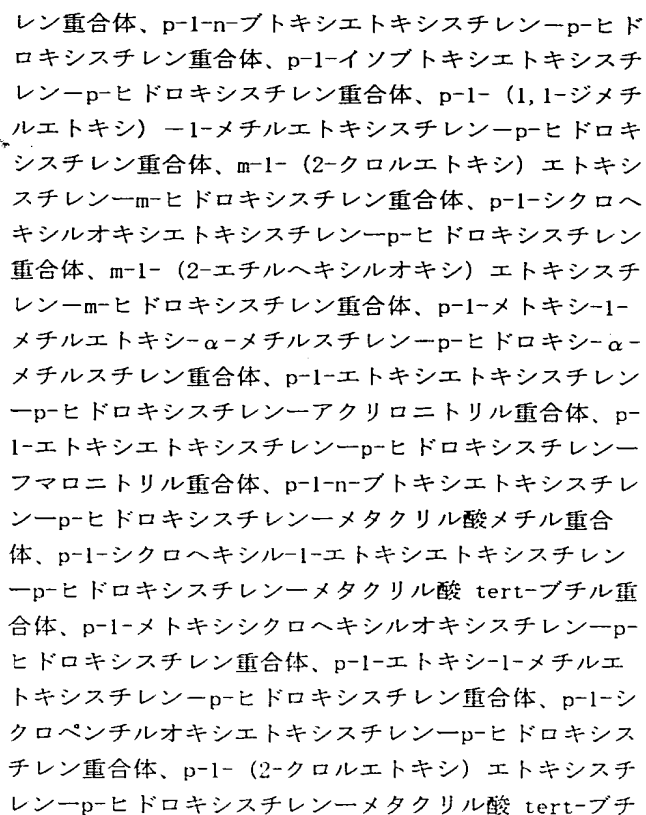 レン重合体、p-1-n-ブトキシエトキシスチレン―p-ヒド
ロキシスチレン重合体、p-1-イソブトキシエトキシスチ
レン―p-ヒドロキシスチレン重合体、p-1-（1,1-ジメチ
ルエトキシ）―1-メチルエトキシスチレン―p-ヒドロキ
シスチレン重合体、m-1-（2-クロルエトキシ）エトキシ
スチレン―m-ヒドロキシスチレン重合体、p-1-シクロヘ
キシルオキシエトキシスチレン―p-ヒドロキシスチレン
重合体、m-1-（2-エチルヘキシルオキシ）エトキシスチ
レン―m-ヒドロキシスチレン重合体、p-1-メトキシ-1-
メチルエトキシ-α-メチルスチレン―p-ヒドロキシ-α-
メチルスチレン重合体、p-1-エトキシエトキシスチレン
―p-ヒドロキシスチレン―アクリロニトリル重合体、p-
1-エトキシエトキシスチレン―p-ヒドロキシスチレン―
フマロニトリル重合体、p-1-n-ブトキシエトキシスチレ
ン―p-ヒドロキシスチレン―メタクリル酸メチル重合
体、p-1-シクロヘキシル-1-エトキシエトキシスチレン
―p-ヒドロキシスチレン―メタクリル酸 tert-ブチル重
合体、p-1-メトキシシクロヘキシルオキシスチレン―p-
ヒドロキシスチレン重合体、p-1-エトキシ-1-メチルエ
トキシスチレン―p-ヒドロキシスチレン重合体、p-1-シ
クロペンチルオキシエトキシスチレン―p-ヒドロキシス
チレン重合体、p-1-（2-クロルエトキシ）エトキシスチ
レン―p-ヒドロキシスチレン―メタクリル酸 tert-ブチ